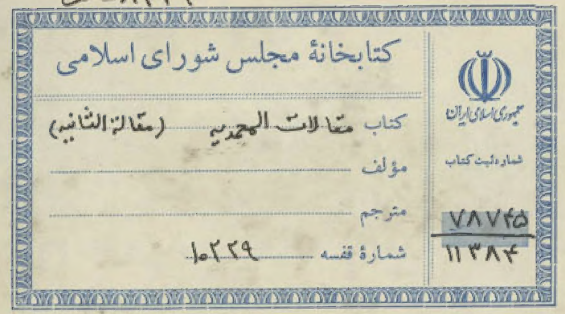 کتابخانهٔ مجلس شورای اسلامی
کتاب مقالات المحمدیه (مقالة الثانیه)
مؤلف
مترجم
شمارهٔ قفسه ۱۰۲۲۹
جمهوری اسلامی ایران
شماره ثبت کتاب
۷۸۷۴۵
۱۱۳۸۴